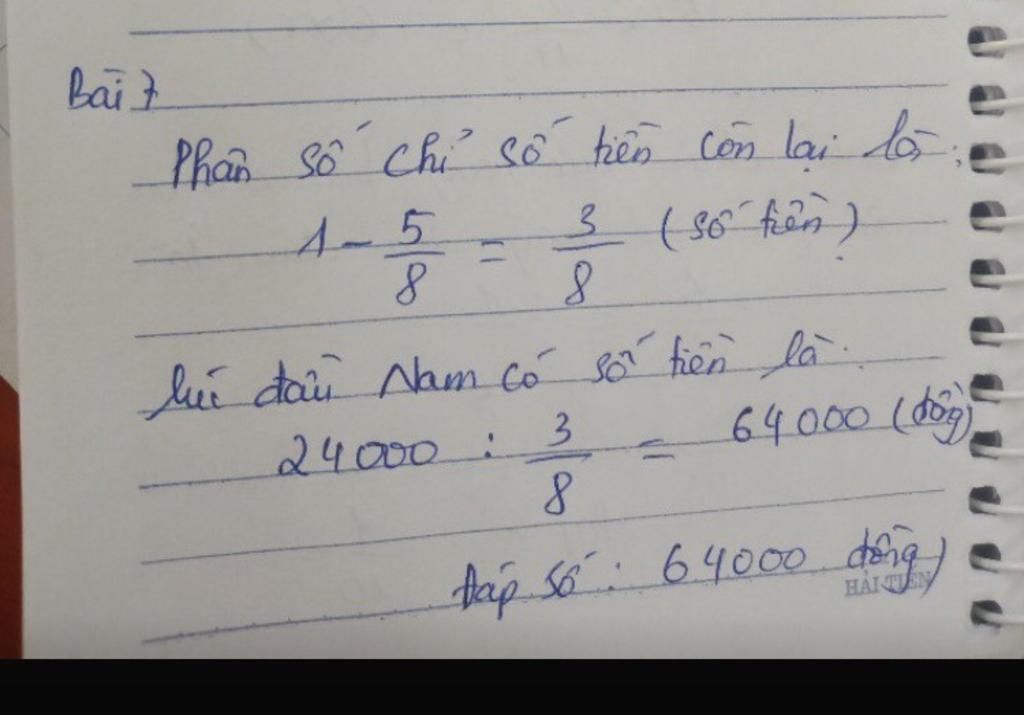 Bài 7
Phân số chỉ số tiền còn lại là:
1 - 5/8 = 3/8 (số tiền)
lúc đầu Nam có số tiền là:
24000 : 3/8 = 64000 (đồng)
Đáp số: 64000 đồng)
HẢI TIẾN